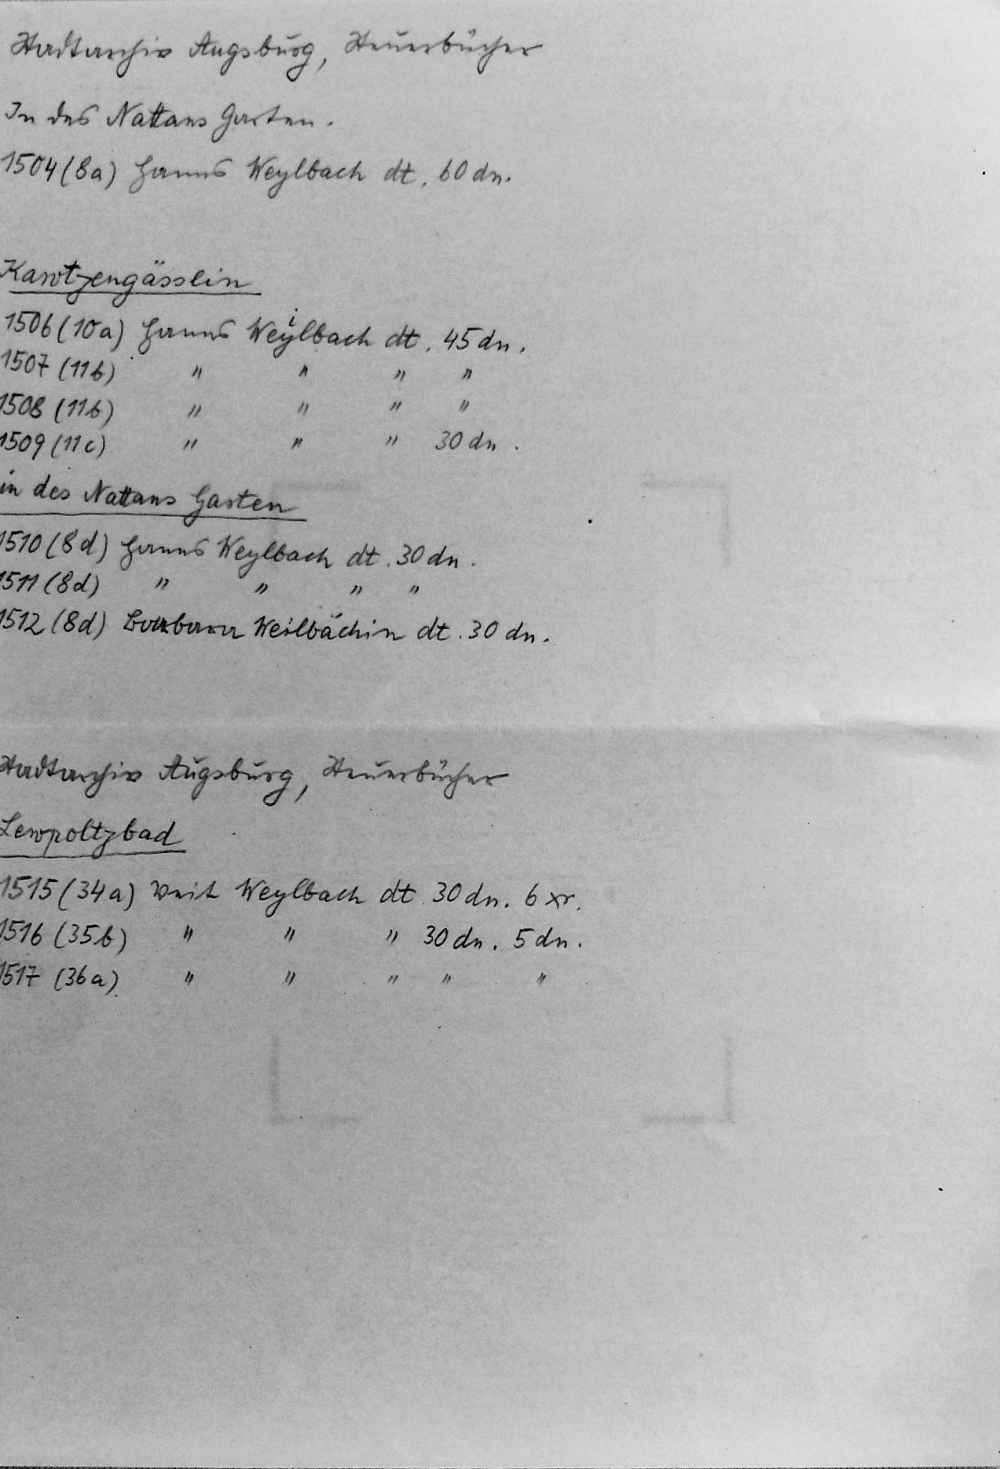 Stadtarchiv Augsburg, Steuerbücher
In des Nattans Garten.
1504 (8a) Hanns Weylbach dt. 60 dn.
Karotzengässlin
1506 (10a) Hanns Weylbach dt. 45 dn.
1507 (11b) " " " "
1508 (11b) " " " "
1509 (11c) " " " 30 dn.
in des Nattans Garten
1510 (8d) Hanns Weylbach dt. 30 dn.
1511 (8d) " " " "
1512 (8d) Barbara Weilbächin dt. 30 dn.
Stadtarchiv Augsburg, Steuerbücher
Lewpoltzbad
1515 (34a) Veit Weylbach dt 30 dn. 6 xr.
1516 (35b) " " " 30 dn. 5 dn.
1517 (36a) " " " " "